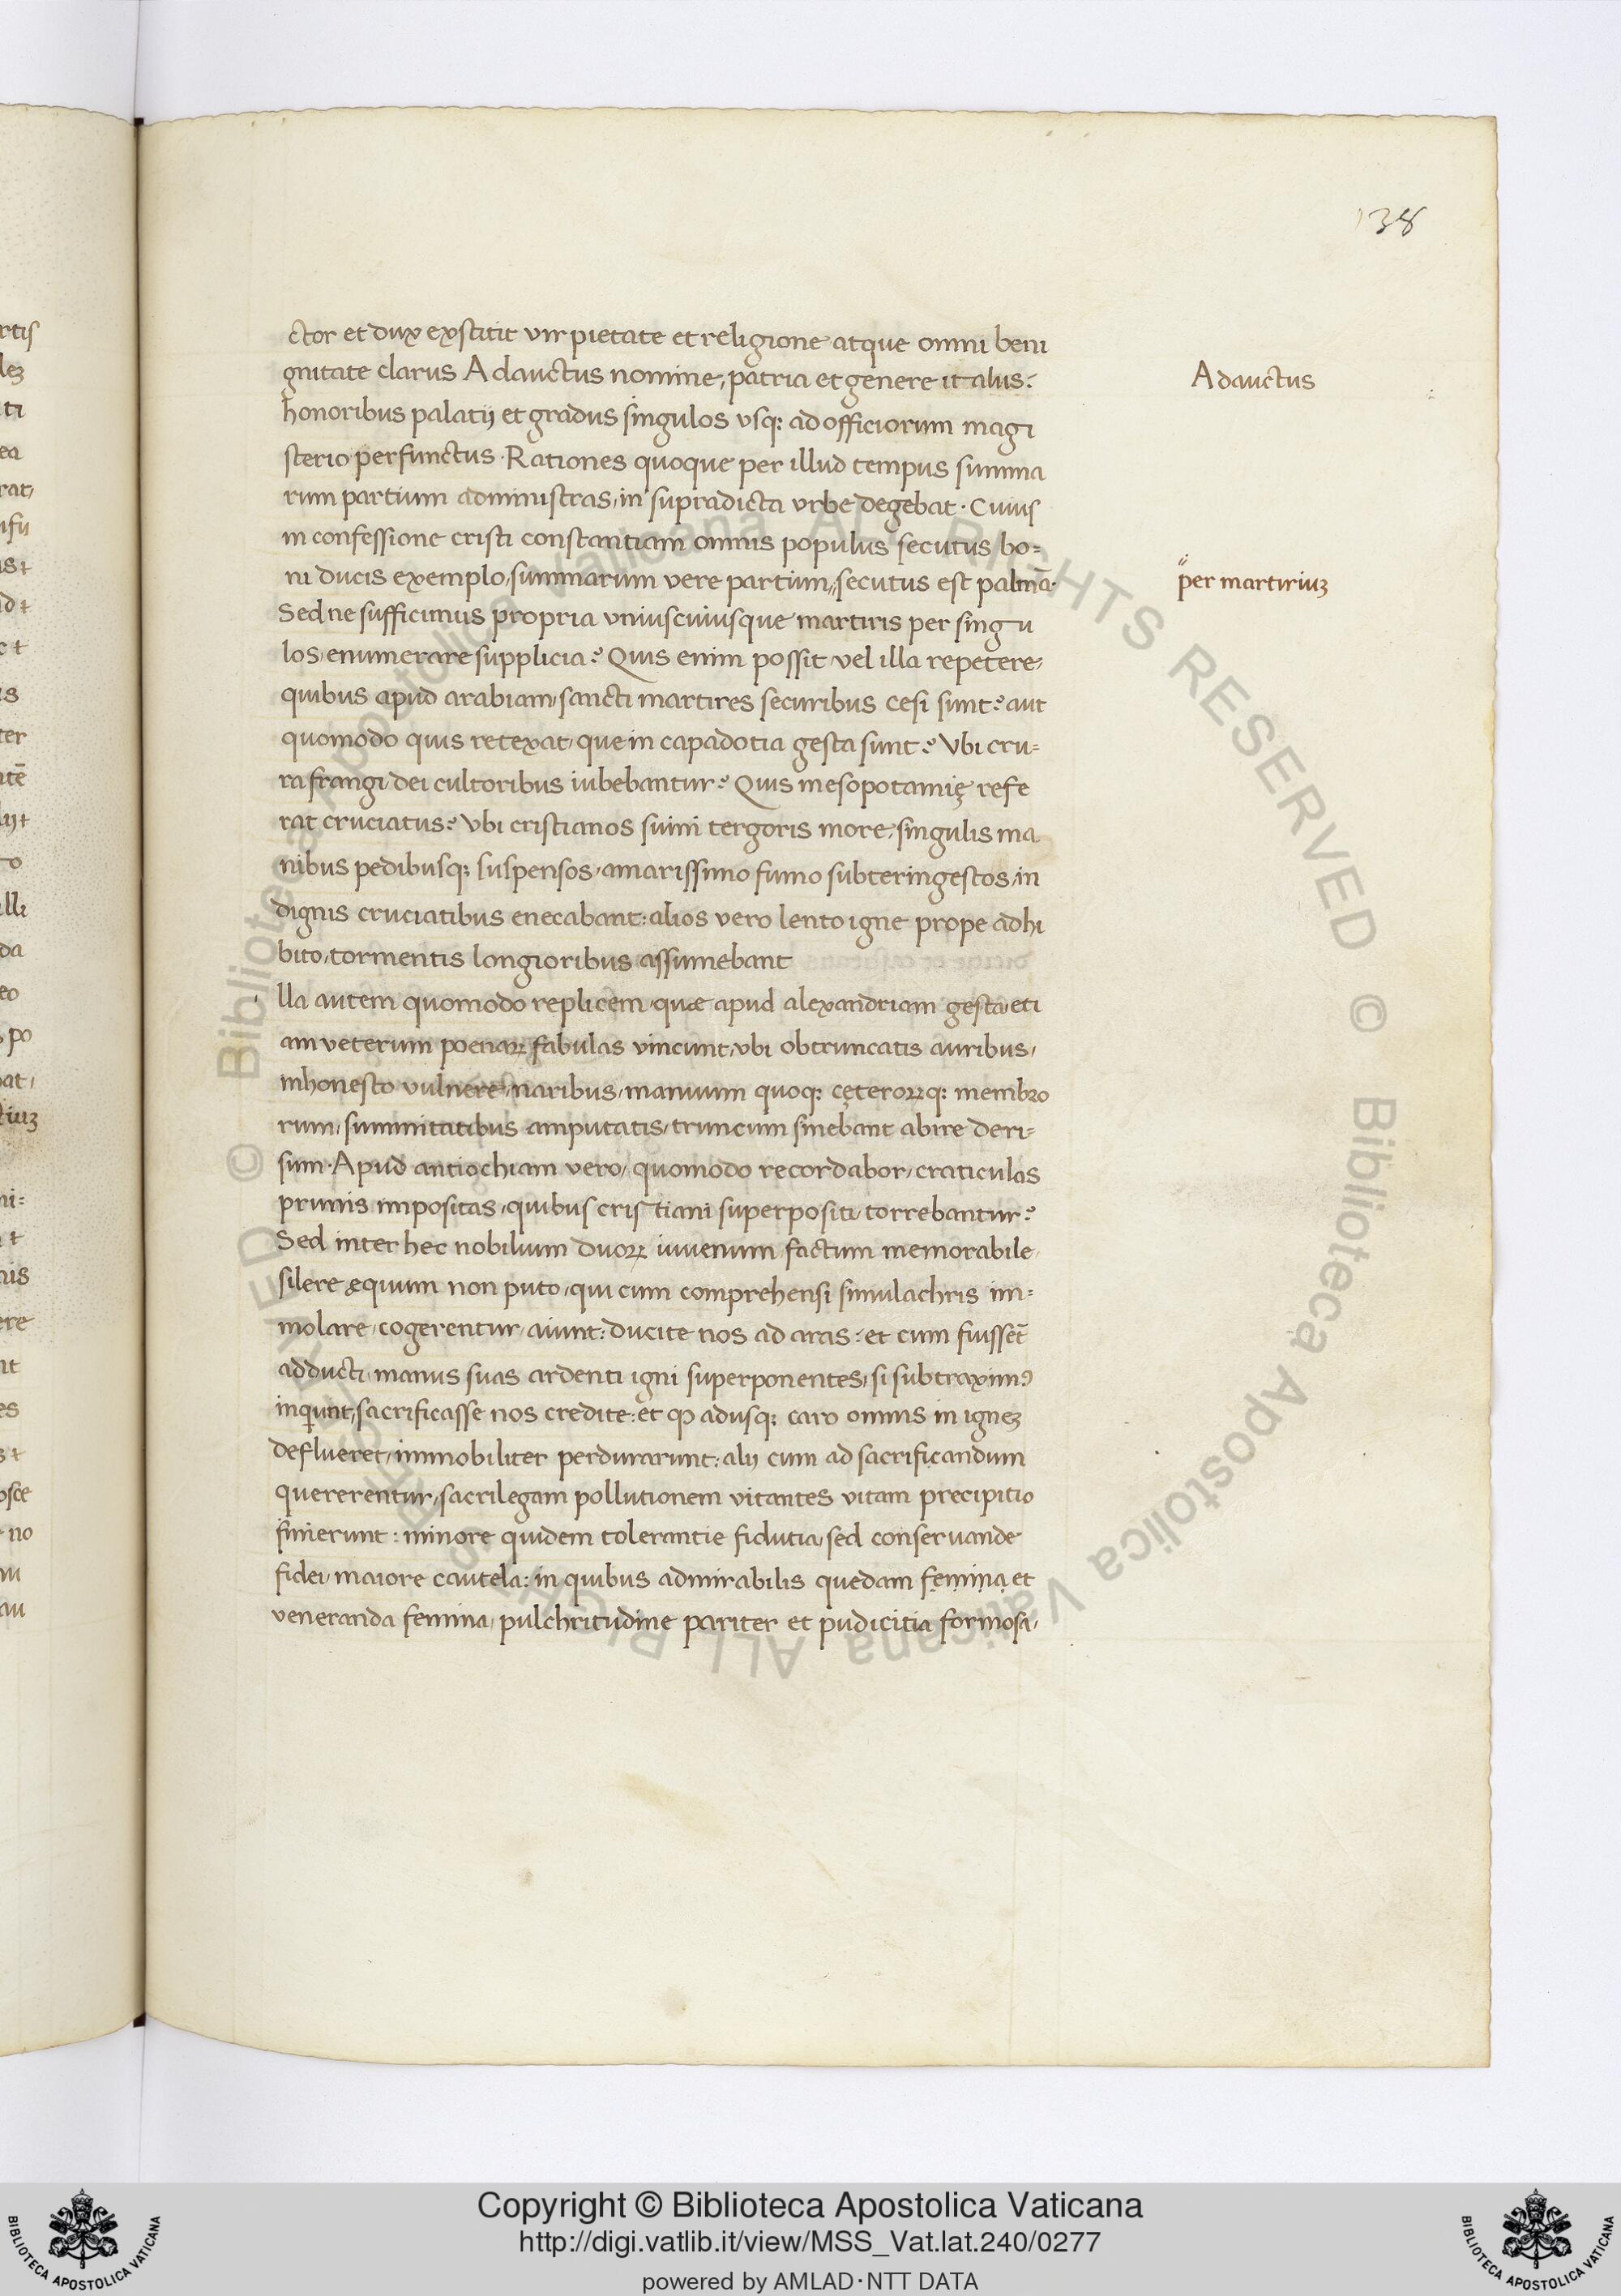 138
ctor et dux exstitit vir pietate et religione atque omni beni
gnitate clarus Adauctus nomine, patria et genere italus:
Adauctus
honoribus palatij et gradus singulos vsq; ad officiorum magi
sterio perfunctus. Rationes quoque per illud tempus summa
rum partium administras, in supradicta vrbe degebat. Cuius
in confessione cristi constantiam omnis populus secutus bo=
ni ducis exemplo, summarum vere partium,, secutus est palmā.
per martiriuz
Sed ne sufficimus propria vniuscuiusque martiris per singu
los, enumerare supplicia? Quis enim possit vel illa repetere,
quibus apud arabiam, sancti martires securibus cesi sunt? aut
quomodo quis retexat, que in capadotia gesta sunt? Vbi cru=
ra frangi, dei cultoribus iubebantur? Quis mesopotamię refe
rat cruciatus? Vbi cristianos suini tergoris more, singulis ma
nibus pedibusq; suspensos, amarissimo fumo subteringestos, in
dignis cruciatibus enecabant: alios vero lento igne prope adhi
bito, tormentis longioribus assumebant
lla autem quomodo replicem, quæ apud alexandriam gesta, eti
am veterum poenaꝝ fabulas vincunt, vbi obtruncatis auribus,
inhonesto vulnere, naribus, manuum quoq; cęteroꝝq; membro
rum, summitatibus amputatis, truncum sinebant abire deri=
sum. Apud antiochiam vero, quomodo recordabor, craticulas
prunis impositas, quibus cristiani superpositi, torrebantur?
Sed inter hec nobilium duoꝝ iuvenum factum memorabile,
silere æquum non puto, qui cum comprehensi simulachris im=
molare, cogerentur, aiunt: ducite nos ad aras: et cum fuissēt
adducti, manus suas ardenti igni superponentes, si subtraximꝰ
inqunt, sacrificasse nos credite: et ꝙ adusq; caro omnis in ignez
deflueret, immobiliter perdurarunt: alij cum ad sacrificandum
quererentur, sacrilegam pollutionem vitantes vitam precipitio
finierunt: minore quidem tolerantie fidutia, sed conseruande
fidei, maiore cautela: in quibus admirabilis quedam femina et
veneranda femina, pulchritudine pariter et pudicitia formosa,
Copyright © Biblioteca Apostolica Vaticana
http://digi.vatlib.it/view/MSS_Vat.lat.240/0277
powered by AMLAD·NTT DATA
BIBLIOTECA APOSTOLICA VATICANA
BIBLIOTECA APOSTOLICA VATICANA
© Biblioteca Apostolica Vaticana ALL RIGHTS RESERVED © Biblioteca Apostolica Vaticana ALL RIGHTS RESERVED